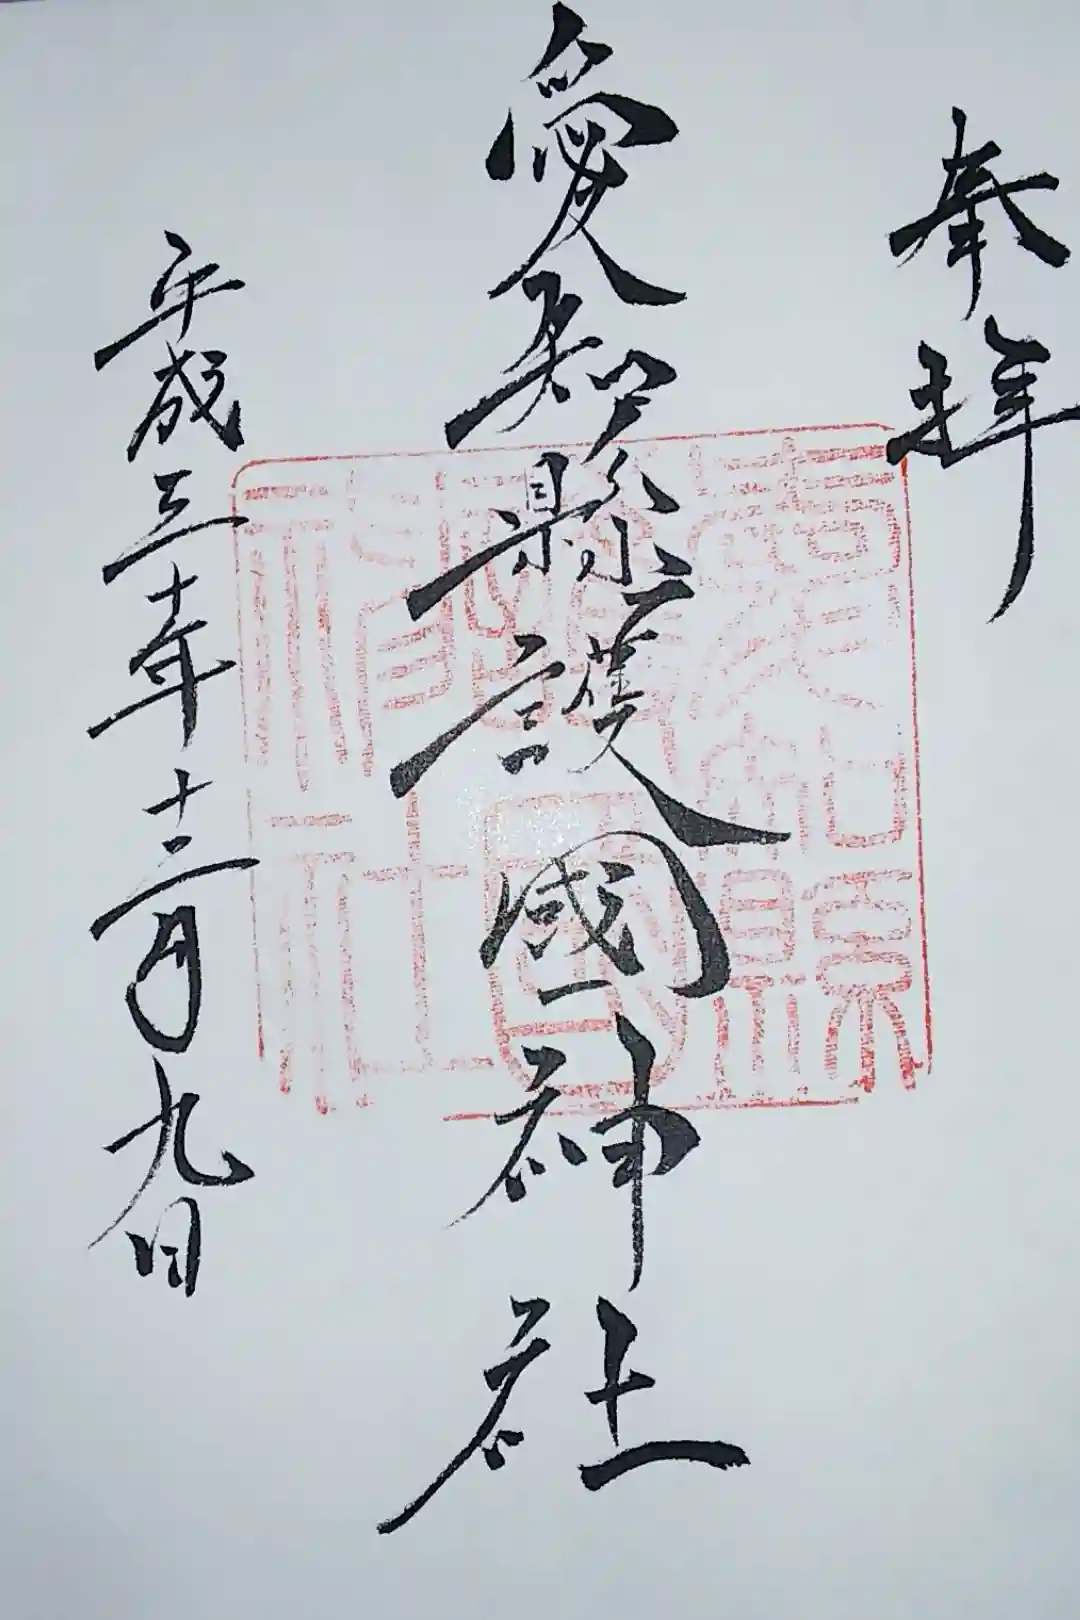 奉拜
愛知縣護國神社
平成三十年十二月九日
愛知縣護國神社